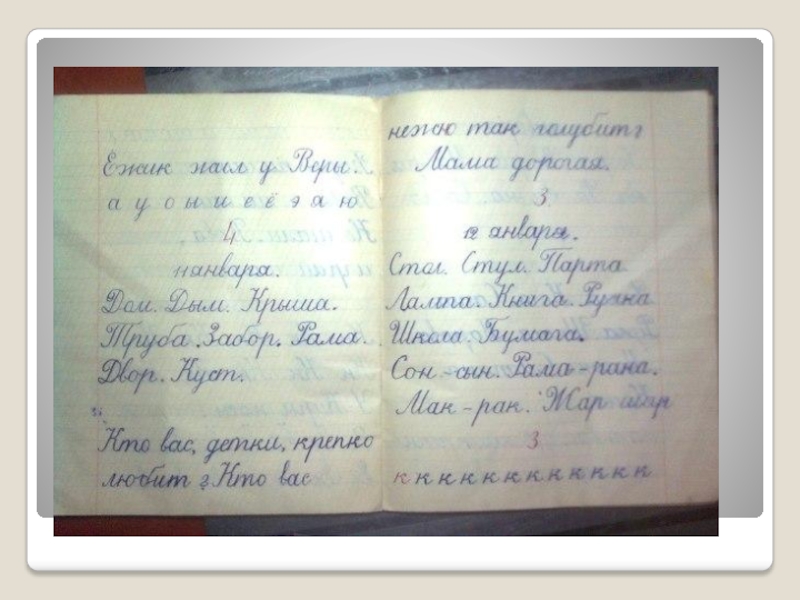 Ежик жил у Веры.
а у о н и е ё э я ю
4
11 января.
Дом. Дым. Крыша.
Труба. Забор. Рама.
Двор. Куст.
Кто вас, детки, крепко
любит? Кто вас
нежно так голубит?
Мама дорогая.
3
12 января.
Стол. Стул. Парта
Лампа. Книга. Ручка
Школа. Бумага.
Сон - сын. Рама - рана.
Мак - рак. Жар шар
3
к к к к к к к к к к к к